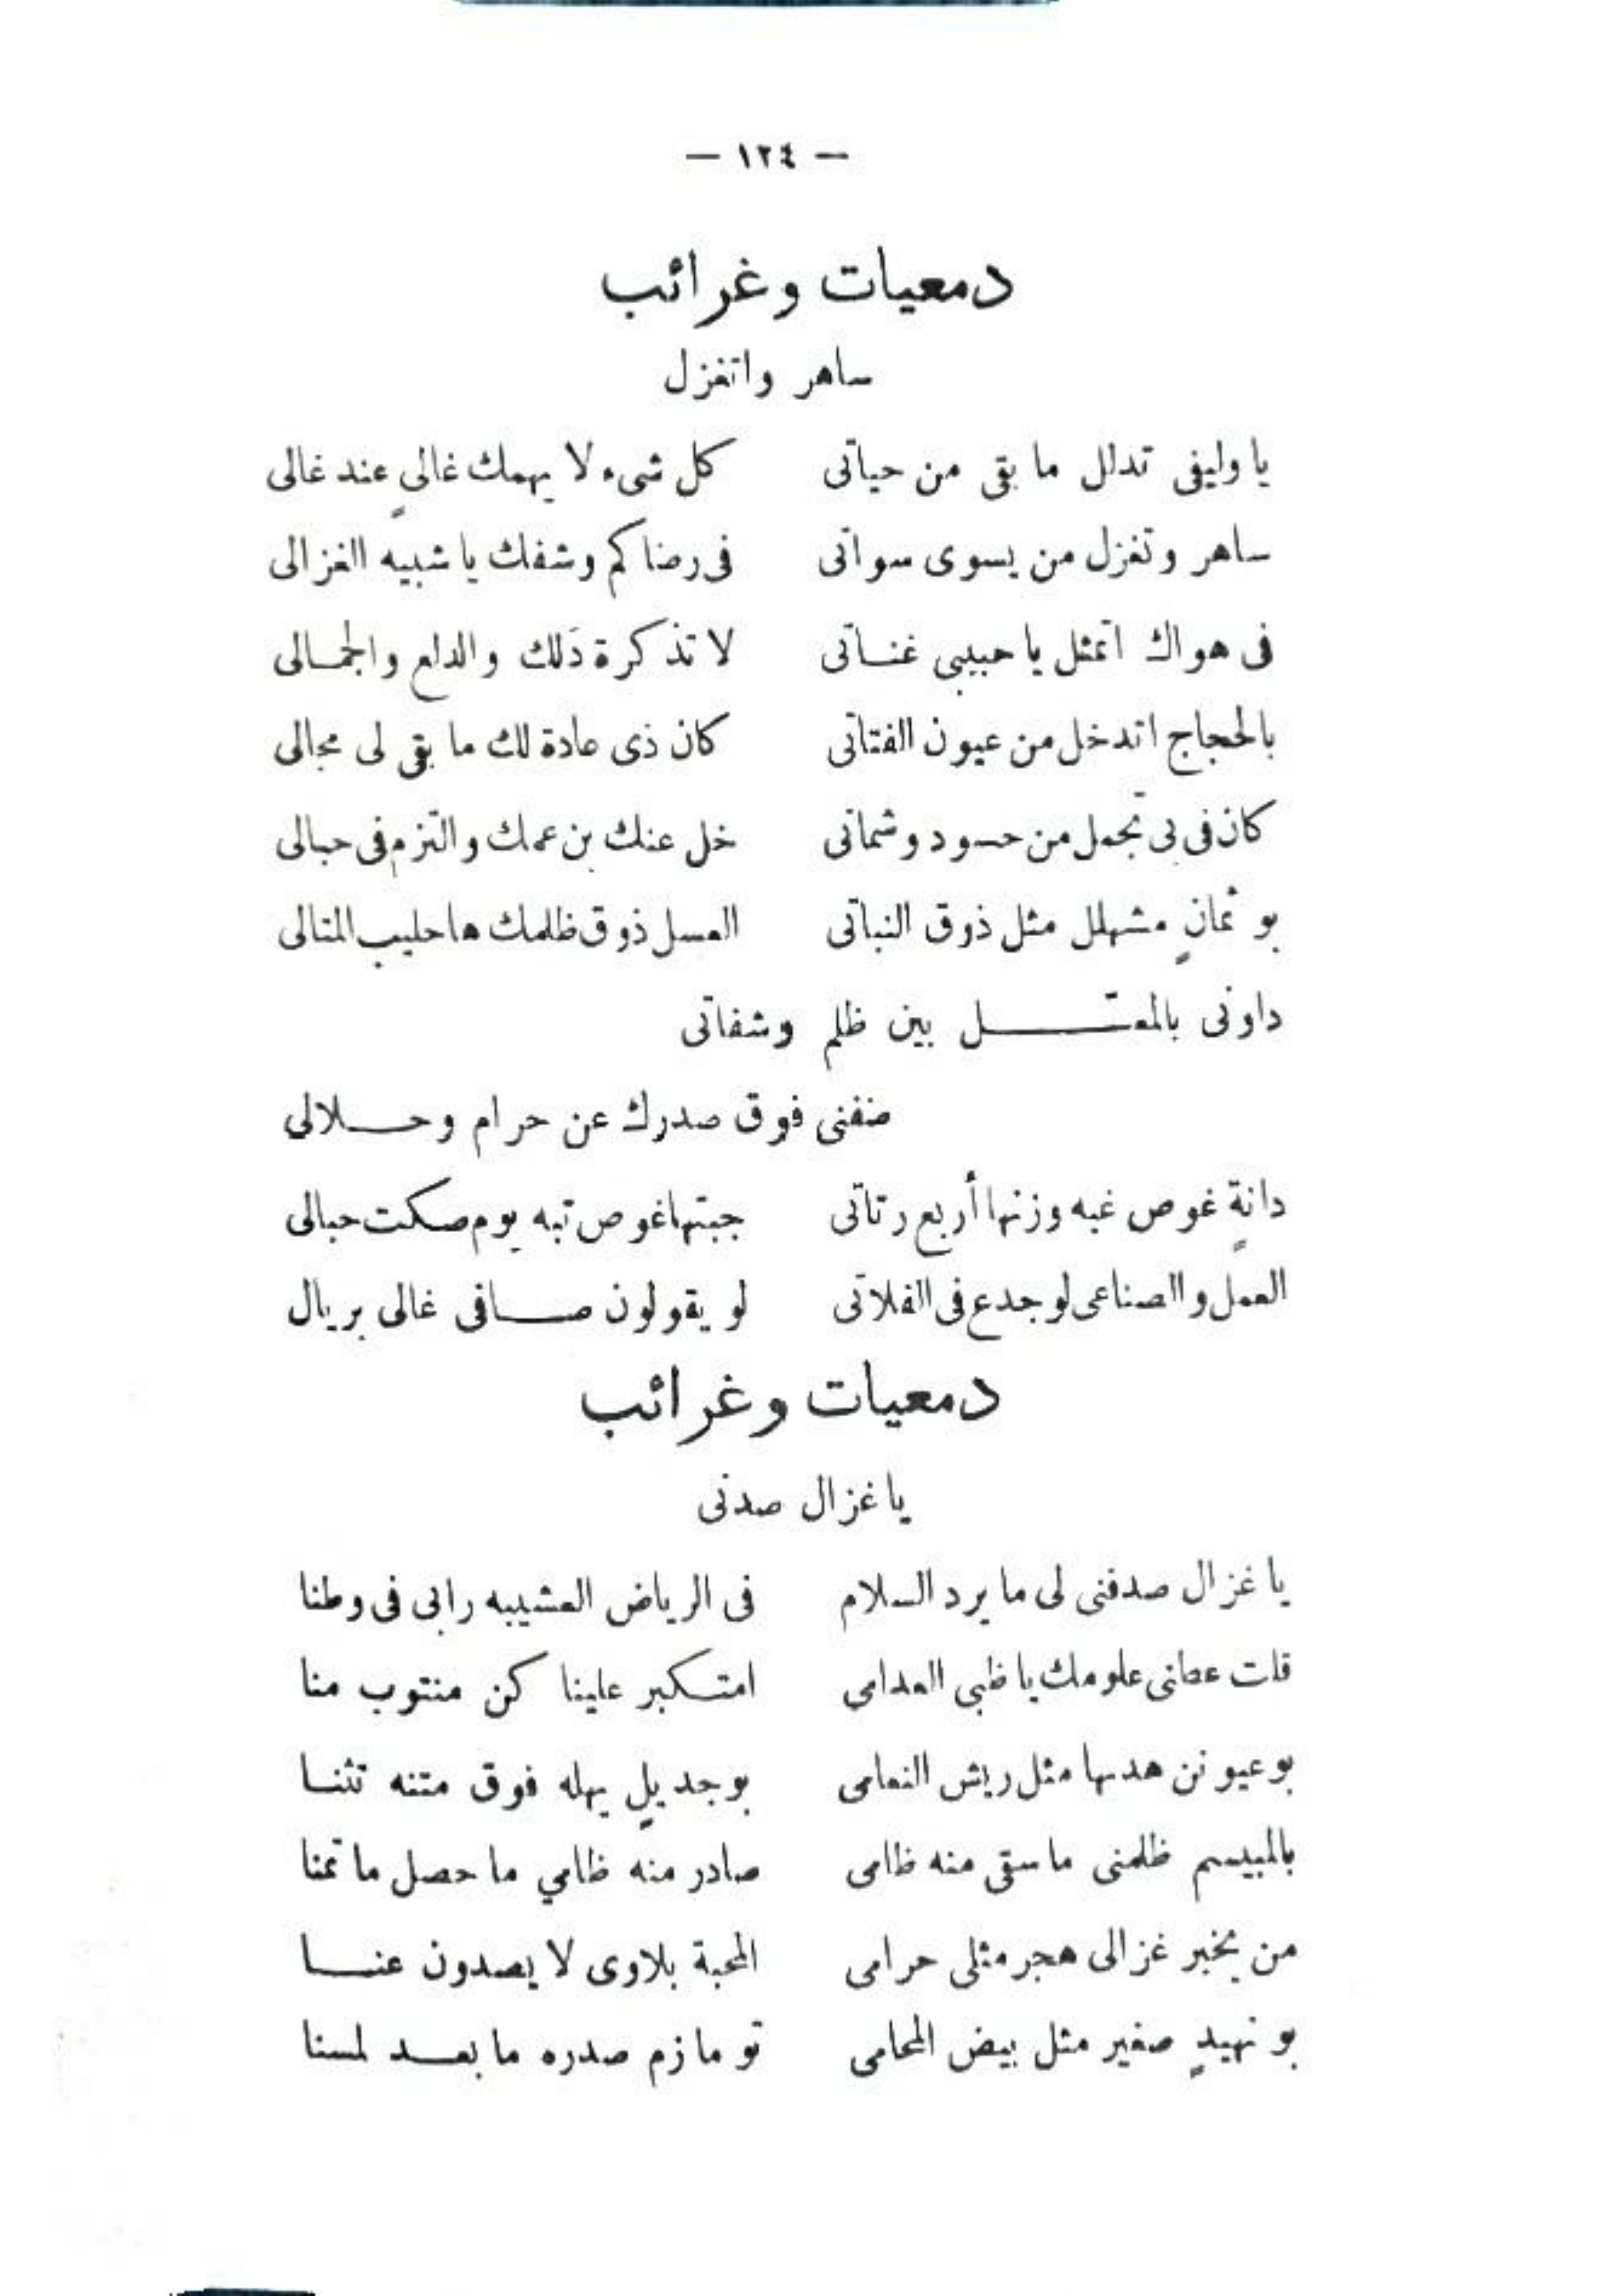 — ١٢٤ —
دمعيات وغرائب
ساهر واتغزل
يا وليفى تدلل ما بقى من حياتى كل شىء لا يهمك غالىٍ عند غالى
ساهر وتغزل من يسوى سواتى فى رضاكم وشفك يا شبيه الغزالى
فى هواك اتمثل يا حبيبى غنـاتى لا تذكرة دَلك والدلع والجمـالى
بالحجاج اتدخل من عيون الفتاتى كان ذى عادة لك ما بقى لى مجالى
كان فى بى تجمل من حسود وشماتى خل عنك بن عمك والتزم فى حبالى
بو ثمانٍ مشهلل مثل ذوق النباتى العسل ذوق ظلمك ها حليب المتالى
داونى بالمعتـــــل بين ظلم وشفاتى
ضفنى فوق صدرك عن حرام وحـــلالى
دانةٍ غوص غبه وزنها أربع رتاتى جبتها غوص تبه يوم صكت حبالى
العمل والصناعى لو جدع فى الفلاتى لو يقولون صـــافى غالى بريال
دمعيات وغرائب
يا غزال صدنى
يا غزال صدفنى لى ما يرد السلام فى الرياض العشيبه رابى فى وطنا
قلت عطانى علومك يا ظبى العدامى امتـكبر علينا كن منتوب منا
بو عيونن هدبها مثل ريش النعامى بو جديلٍ يهله فوق متنه تثنـا
بالمبيسم ظلمنى ما سقى منه ظامى صادر منه ظامي ما حصل ما تمنا
من يخبر غزالى هجر مثلى حرامى المحبة بلاوى لا يصدون عنـــا
بو نهيدٍ صغير مثل بيض المحامى تو ما زم صدره ما بعــد لمسنا